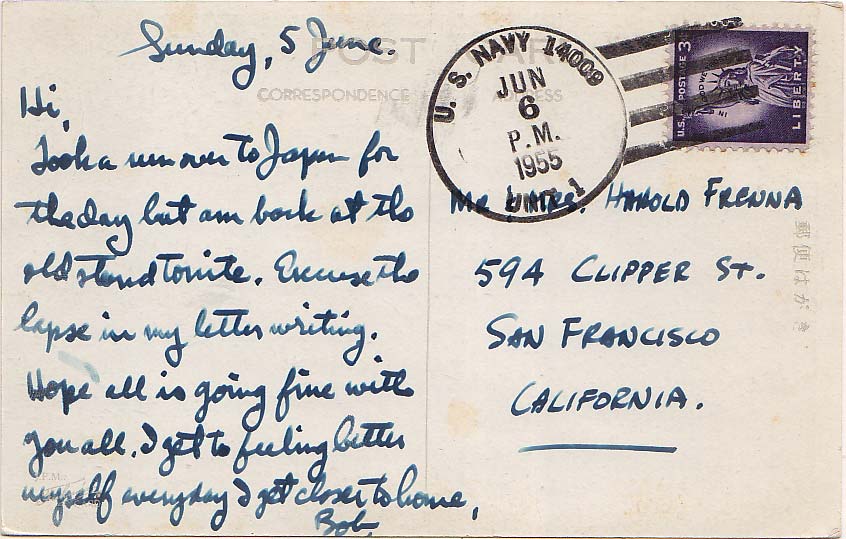 POST CARD
CORRESPONDENCE
ADDRESS
Sunday, 5 June.
Hi,
Took a run over to Japan for
the day but am back at the
old stand tonite. Excuse the
lapse in my letter writing.
Hope all is going fine with
you all. I get to feeling better
myself everyday I get closer to home,
Bob.
U. S. NAVY 14009
JUN
6
P.M.
1955
UNIT 1
U.S. POSTAGE 3¢
LIBERTY
Mr & Mrs. HAROLD FRENNA
594 CLIPPER ST.
SAN FRANCISCO
CALIFORNIA.
郵便はがき